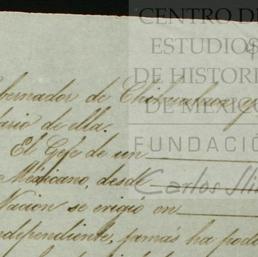 CENTRO DE
ESTUDIOS
DE HISTORI
DE MEXICO
FUNDACIÓ
Carlos Sli
bernador de Chihuahua y
tario de ella.
El Gefe de un
Mexicano, desde
Nacion se erigió en
ndependiente, jamás ha pod